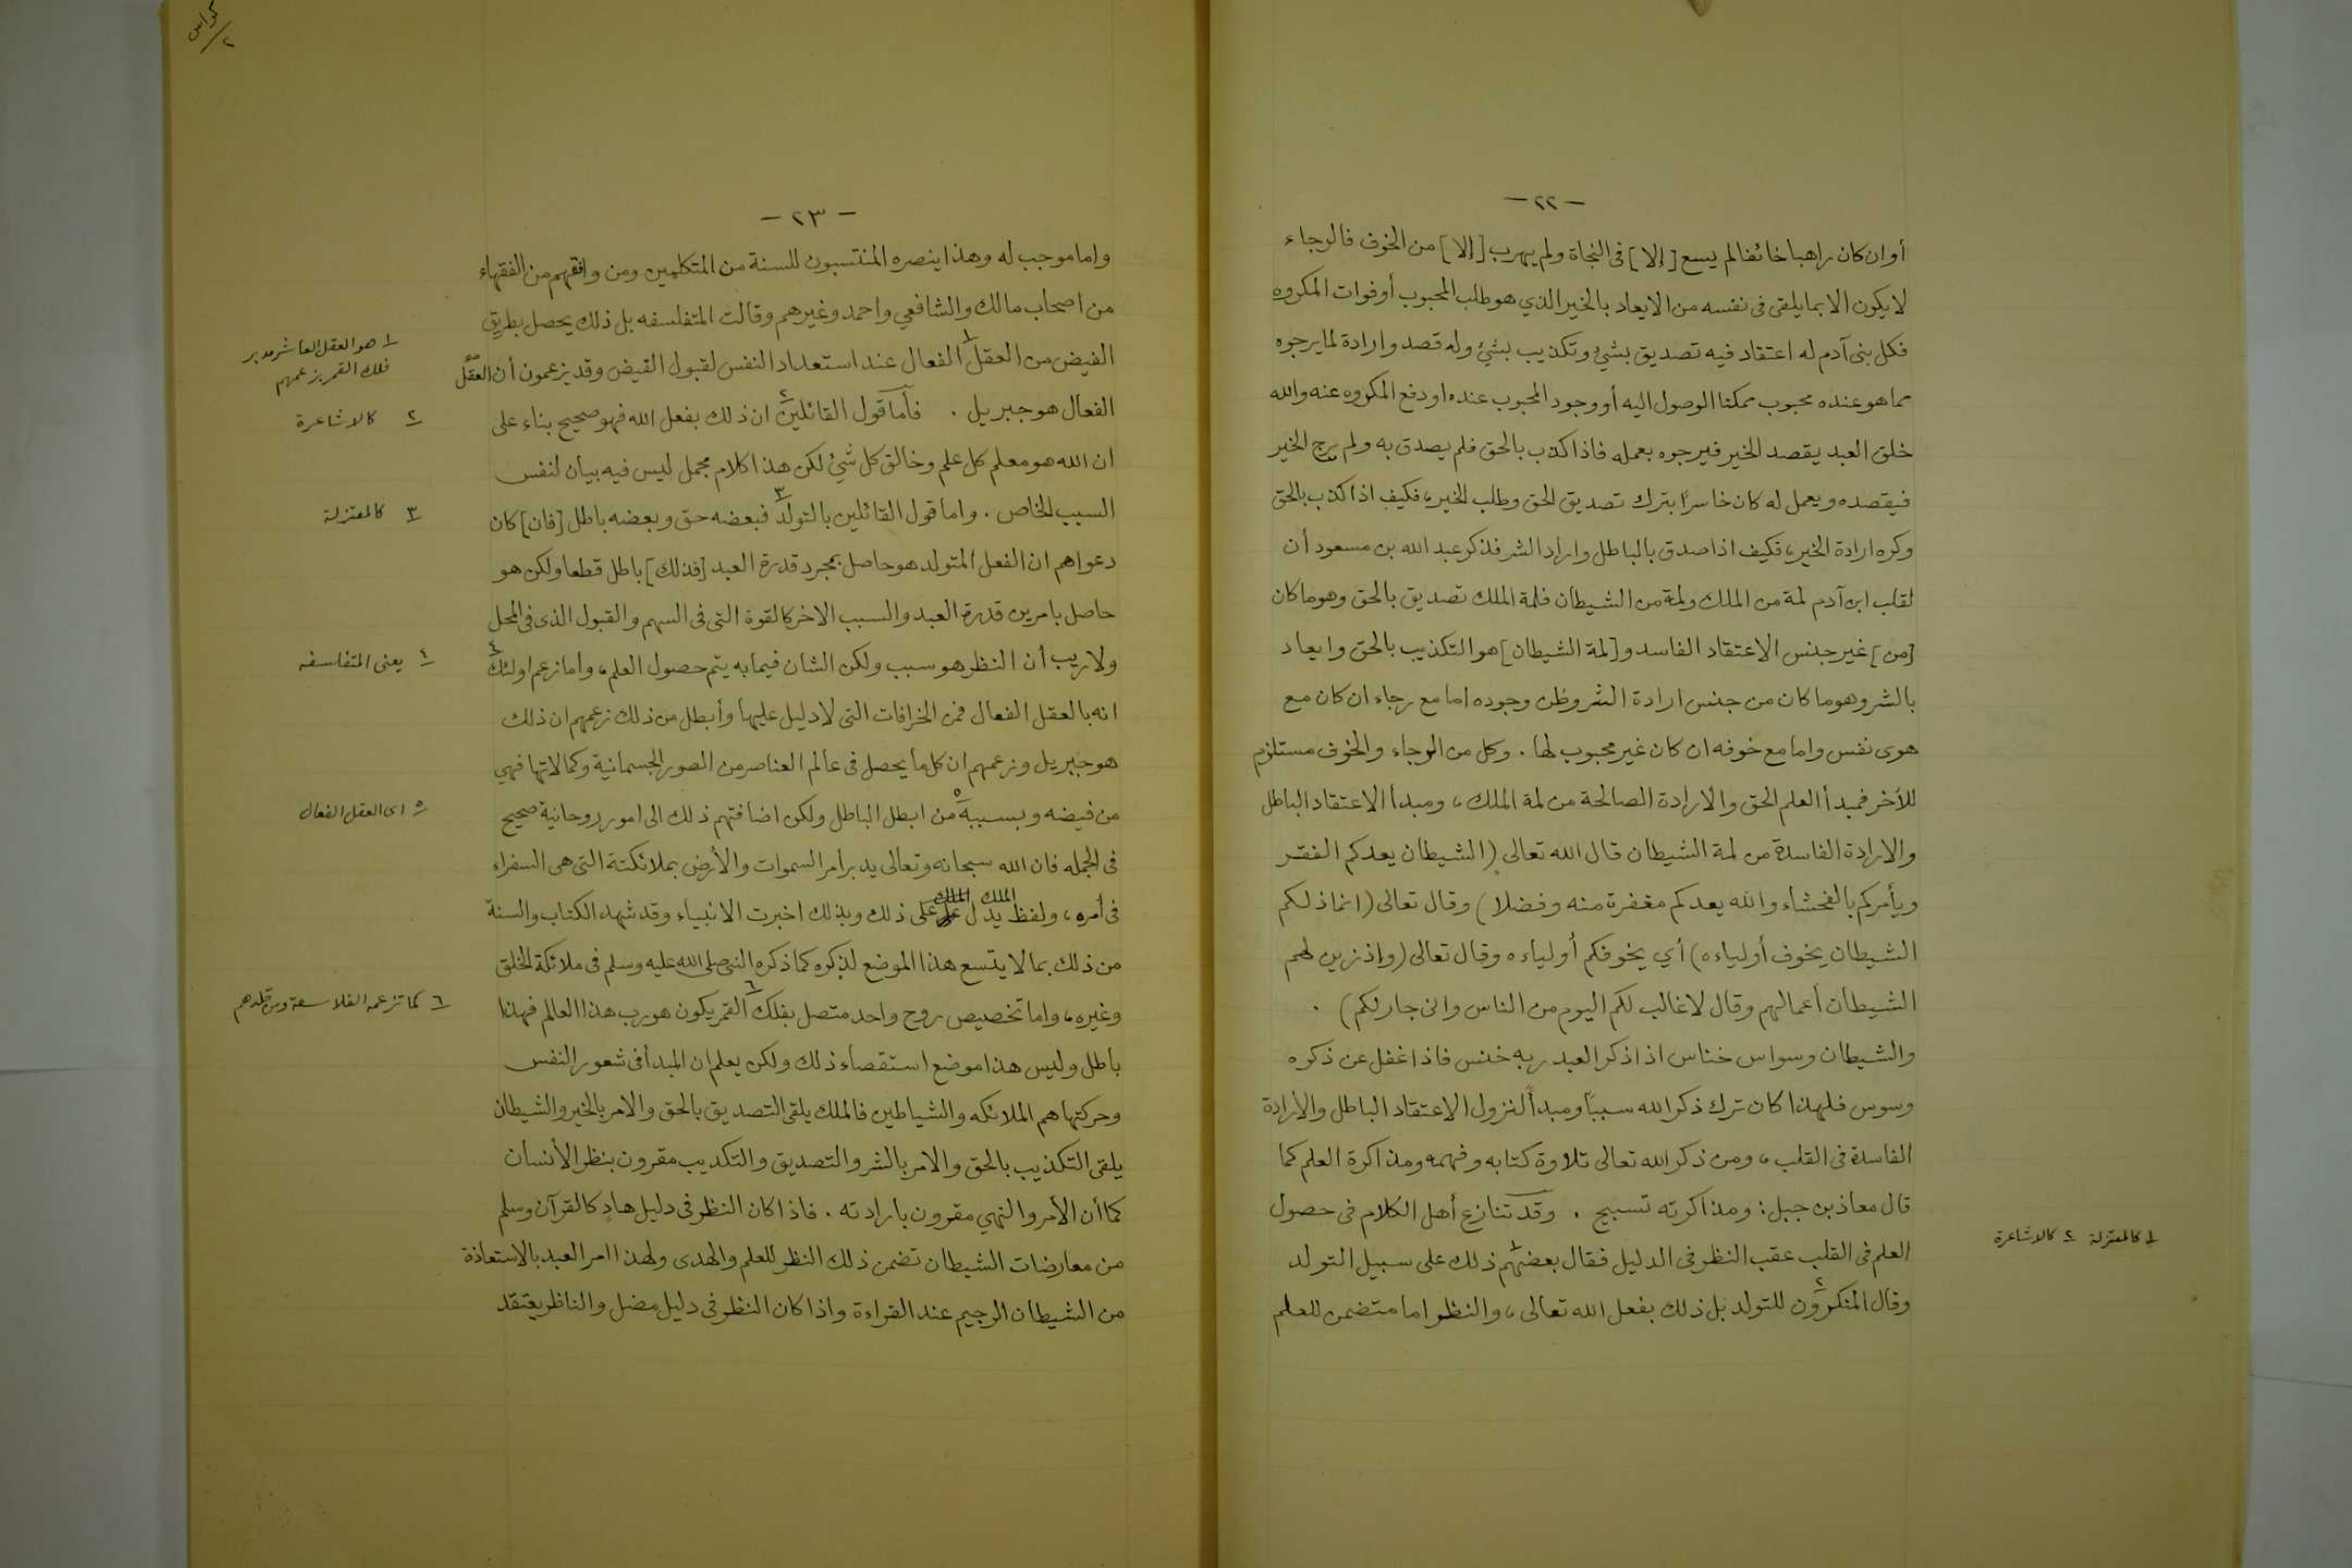 - ٢٢ -
أو ان كان راهبا خائفا لم يسع [إلا] فى النجاة ولم يهرب [إلا] من الخوف فالرجاء
لا يكون الا بما يلقى فى نفسه من الايعاد بالخير الذي هو طلب المحبوب أو فوات المكروه
فكل بنى آدم له اعتقاد فيه تصديق بشئ وتكذيب بشئ وله قصد وارادة لما يرجوه
مما هو عنده محبوب ممكنا الوصول اليه أو وجود المحبوب عنده او دفع المكروه عنه والله
خلق العبد يقصد الخير فيرجوه بعمله فاذا كذب بالحق فلم يصدق به ولم يرج الخير
فيقصده ويعمل له كان خاسرًا بترك تصديق الحق وطلب الخير، فكيف اذا كذب بالحق
وكره ارادة الخير، فكيف اذا صدق بالباطل واراد الشر فذكر عبد الله بن مسعود أن
لقلب ابن آدم لمة من الملك ولمة من الشيطان فلمة الملك تصديق بالحق وهو ما كان
[من] غير جنس الاعتقاد الفاسد و[لمة الشيطان] هو التكذيب بالحق وايعاد
بالشر وهو ما كان من جنس ارادة الشر وظن وجوده اما مع رجاء ان كان مع
هوى نفس واما مع خوفه ان كان غير محبوب لها . وكل من الرجاء والخوف مستلزم
للآخر فمبدأ العلم الحق والارادة الصالحة من لمة الملك ، ومبدأ الاعتقاد الباطل
والارادة الفاسدة من لمة الشيطان قال الله تعالى (الشيطان يعدكم الفقر
ويأمركم بالفحشاء والله يعدكم مغفرة منه وفضلا) وقال تعالى (انما ذلكم
الشيطان يخوف أولياءه) أي يخوفكم أولياءه وقال تعالى (واذ زين لهم
الشيطان أعمالهم وقال لا غالب لكم اليوم من الناس وانى جار لكم) .
والشيطان وسواس خناس اذا ذكر العبد ربه خنس فاذا غفل عن ذكره
وسوس فلهذا كان ترك ذكر الله سببًا ومبدأ لنزول الاعتقاد الباطل والارادة
الفاسدة فى القلب ، ومن ذكر الله تعالى تلاوة كتابه وفهمه ومذاكرة العلم كما
قال معاذ بن جبل : ومذاكرته تسبيح . وقد تنازع أهل الكلام فى حصول
العلم فى القلب عقب النظر فى الدليل فقال بعضهم١ ذلك على سبيل التولد
وقال المنكرون٢ للتولد بل ذلك بفعل الله تعالى ، والنظر اما متضمن للعلم
١ كالمعتزلة ٢ كالاشاعرة
كراس ٢
- ٢٣ -
واما موجب له وهذا ينصره المنتسبون للسنة من المتكلمين ومن وافقهم من الفقهاء
من اصحاب مالك والشافعي واحمد وغيرهم وقالت المتفلسفه بل ذلك يحصل بطريق
الفيض من العقل١ الفعال عند استعداد النفس لقبول الفيض وقد يزعمون أن العقل
الفعال هو جبريل . فأما قول القائلين٢ ان ذلك بفعل الله فهو صحيح بناء على
ان الله هو معلم كل علم وخالق كل شئ لكن هذا كلام مجمل ليس فيه بيان لنفس
السبب الخاص . واما قول القائلين بالتولد٣ فبعضه حق وبعضه باطل [فان] كان
دعواهم ان الفعل المتولد هو حاصل بمجرد قدرة العبد [فذلك] باطل قطعا ولكن هو
حاصل بامرين قدرة العبد والسبب الاخر كالقوة التى فى السهم والقبول الذى فى المحل
ولا ريب أن النظر هو سبب ولكن الشان فيما به يتم حصول العلم ، واما زعم اولئك٤
انه بالعقل الفعال فمن الخرافات التى لا دليل عليها وأبطل من ذلك زعمهم ان ذلك
هو جبريل وزعمهم ان كل ما يحصل فى عالم العناصر من الصور الجسمانية وكمالاتها فهي
من فيضه وبسببه٥ من ابطل الباطل ولكن اضافتهم ذلك الى امور روحانية صحيح
فى الجمله فان الله سبحانه وتعالى يدبر أمر السموات والأرض بملائكتة التى هى السفراء
فى أمره ، ولفظ الملك يدل على ذلك وبذلك اخبرت الانبياء وقد شهد الكتاب والسنة
من ذلك بما لا يتسع هذا الموضع لذكره كما ذكره النبى صلى الله عليه وسلم فى ملائكة الخلق
وغيره ، واما تخصيص روح واحد متصل بفلك٦ القمر يكون هو رب هذا العالم فهذا
باطل وليس هذا موضع استقصاء ذلك ولكن يعلم ان المبدأ فى شعور النفس
وحركتها هم الملائكه والشياطين فالملك يلقى التصديق بالحق والامر بالخير والشيطان
يلقى التكذيب بالحق والامر بالشر والتصديق والتكذيب مقرون بنظر الأنسان
كما أن الأمر والنهي مقرون بارادته . فاذا كان النظر فى دليل هادٍ كالقرآن وسلم
من معارضات الشيطان تضمن ذلك النظر للعلم والهدى ولهذا امر العبد بالاستعاذة
من الشيطان الرجيم عند القراءة واذا كان النظر فى دليل مضل والناظر يعتقد
١ هو العقل العاشر مدبر
فلك القمر بزعمهم
٢ كالاشاعرة
٣ كالمعتزلة
٤ يعنى المتفلسفه
٥ اى العقل الفعال
٦ كما تزعمه الفلاسفة ومن قلدهم